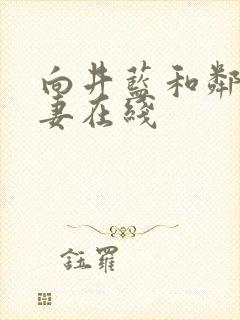 向井蓝和鄰
妻在綫
鈺羅